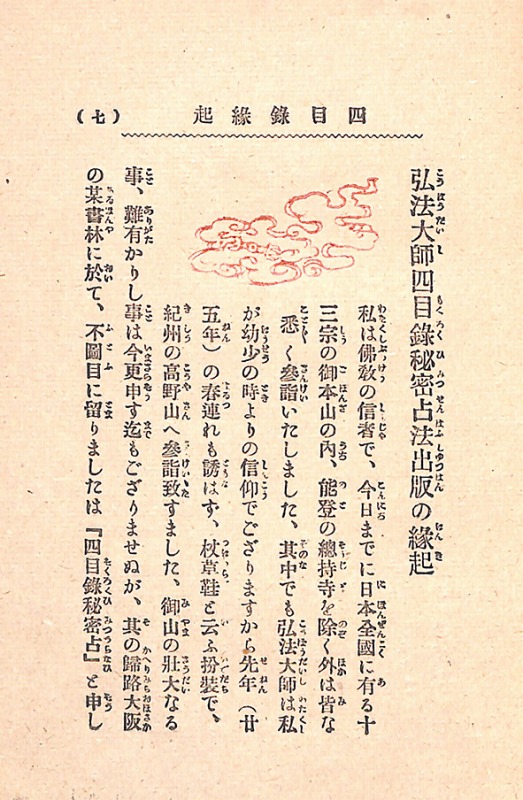 四目錄緣起
(七)
弘法大師四目錄秘密占法出版の緣起
私は佛敎の信者で、今日までに日本全國に有る十
三宗の御本山の內、能登の總持寺を除く外は皆な
悉く參詣いたしました、其中でも弘法大師は私
が幼少の時よりの信仰でござりますから先年(廿
五年)の春連れも誘はず、杖草鞋と云ふ扮裝で、
紀州の高野山へ參詣致すました、御山の壯大なる
事、難有かりし事は今更申す迄もございませぬが、其の歸路大阪
の某書林に於て、不圖目に留りましたは『四目錄秘密占』と申し